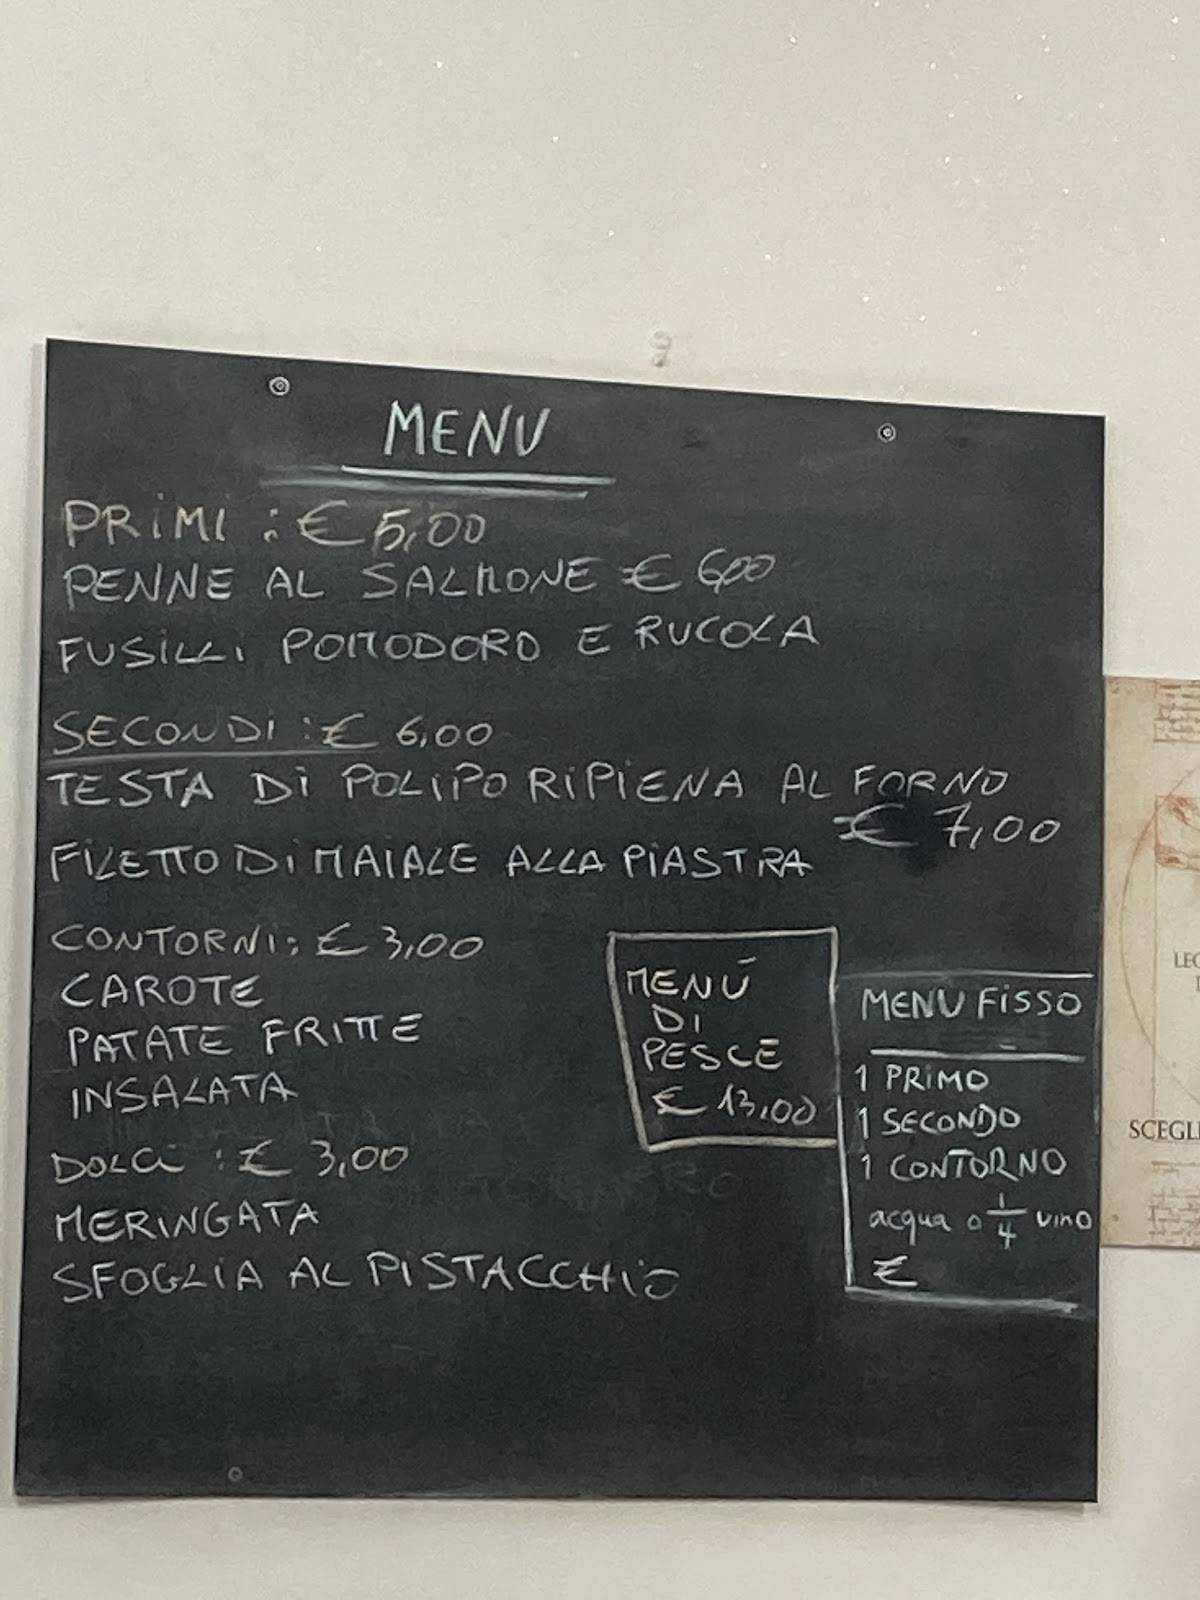 MENU
PRIMI : € 5,00
PENNE AL SALMONE € 6,00
FUSILLI POMODORO E RUCOLA
SECONDI : € 6,00
TESTA DI POLIPO RIPIENA AL FORNO
€ 7,00
FILETTO DI MAIALE ALLA PIASTRA
CONTORNI: € 3,00
CAROTE
PATATE FRITTE
INSALATA
DOLCI : € 3,00
MERINGATA
SFOGLIA AL PISTACCHIO
MENÚ
DI
PESCE
€ 13,00
MENU FISSO
1 PRIMO
1 SECONDO
1 CONTORNO
acqua o 1/4 vino
€
LEO
SCEGLI